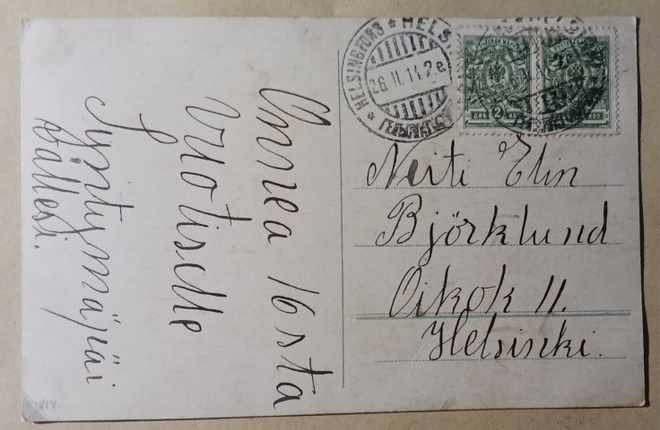 Onnea 16sta
vuotiselle
Syntymäpäi
vällesi.
HELSINGFORS * HELS
26.II.14.
Neiti Elin
Björklund
Oikok 11.
Helsinki.